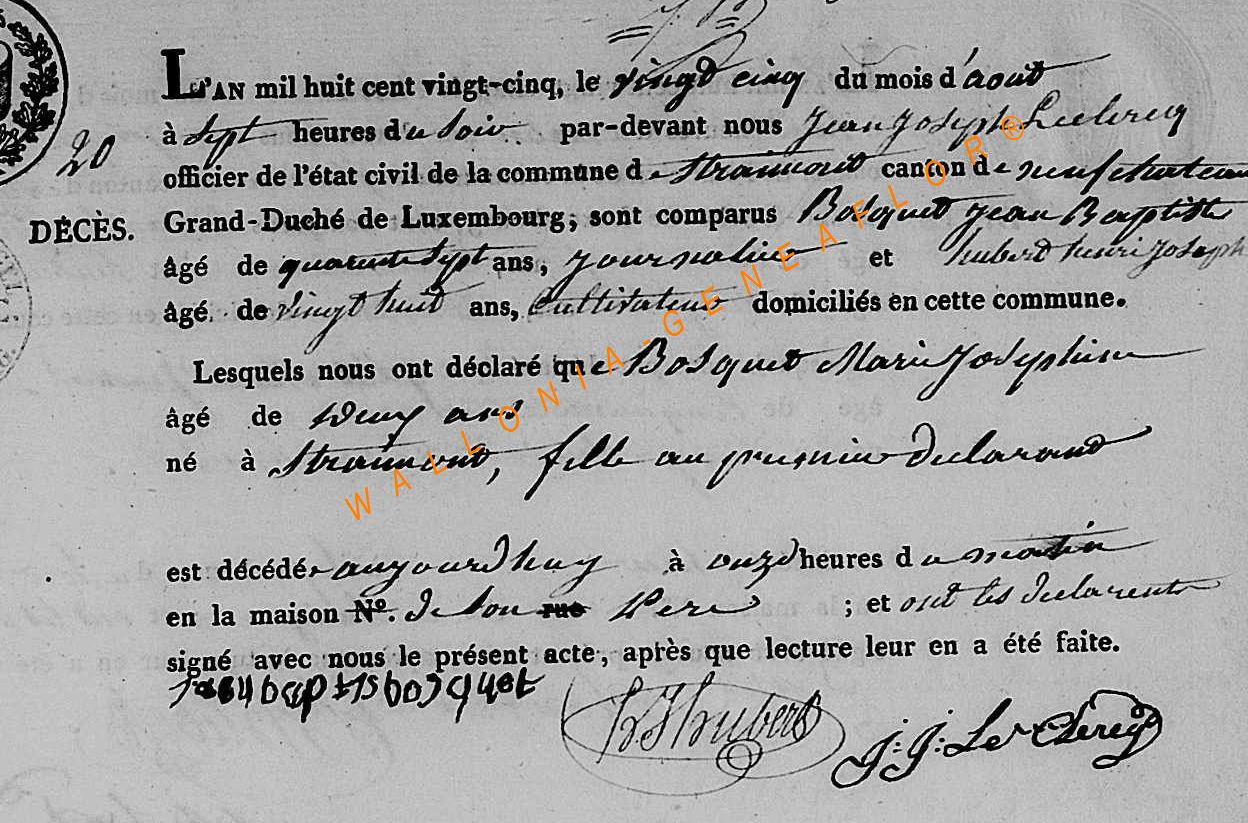 L'AN mil huit cent vingt-cinq, le vingt cinq du mois d'aout
à sept heures du soir par-devant nous Jean Joseph Leclercq
20
officier de l'état civil de la commune de Straimont canton de neufchateau
DÉCÈS.
Grand-Duché de Luxembourg; sont comparus Bosquet Jean Baptiste
âgé de quarante sept ans, journalier et hubert henri Joseph
âgé de vingt huit ans, Cultivateur domiciliés en cette commune.
Lesquels nous ont déclaré que Bosquet Marie Josephine
âgé de deux ans
né à Straimont, fille au premier declarant
est décédée aujourdhuy à onze heures du matin
en la maison Nº. de son rue Pere ; et ont les declarents
signé avec nous le présent acte, après que lecture leur en a été faite.
bosquet
hJHubert
J: J: Le Clercq
WALLONIA-GENEAFLOR®